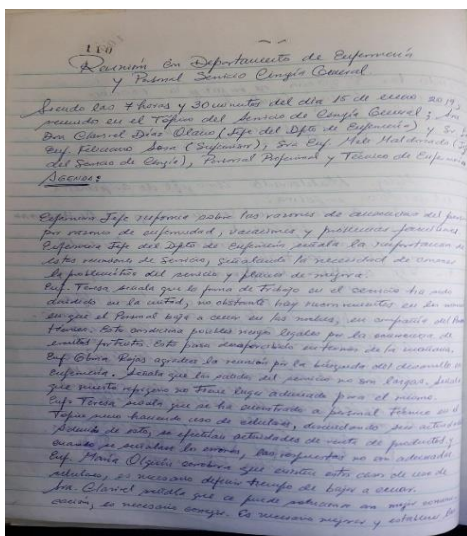 Reunión en Departamento de Enfermería
y Personal Servicio Cirugía General
Siendo las 7 horas y 30 minutos del día 15 de enero 2019,
reunidos en el Tópico del Servicio de Cirugía General; Sra
Dra Clarivel Díaz Olano (Jefe del Dpto de Enfermería) y Sr.
Enf. Feliciano Sosa (Supervisor), Sra Enf. Maldonado
del Servicio de Cirugía), Personal Profesional y Técnico de Enfermería
AGENDA:
Enfermera Jefe informa sobre las razones de ausencias del
por razones de enfermedad, vacaciones y problemas familiares.
Enfermera Jefe del Dpto de Enfermería señala la importancia de
estas reuniones de Servicio, señalando la necesidad de conocer
la problemática del servicio y planes de mejora.
Enf. Teresa señala que la de trabajo en el servicio ha sido
en la mitad, no obstante hay en
en que el Personal baja a cenar en las noches, en compañía del
Esto conduciría posibles legales por la
Esto pasa desapercibido
Enf. Gloria Rojas agradece la reunión por la búsqueda del desarrollo de
Enfermería. Señala que las del servicio no son largas,
que nuestro refrigerio no tiene lugar adecuado para el mismo.
Enf. Teresa señala que se ha encontrado a personal técnico en el
Tópico haciendo uso de celulares, descuidando sus actividades
Además de esto, se efectúan actividades de venta de productos y
cuando se señalan los errores, las respuestas no son adecuadas
Enf. María Olguín corrobora que existen estos casos de uso de
celulares, es necesario definir tiempo de bajar a cenar.
Sra. Clarivel señala que se puede solucionar con mejor
es necesario corregir. Es necesario mejorar y establecer